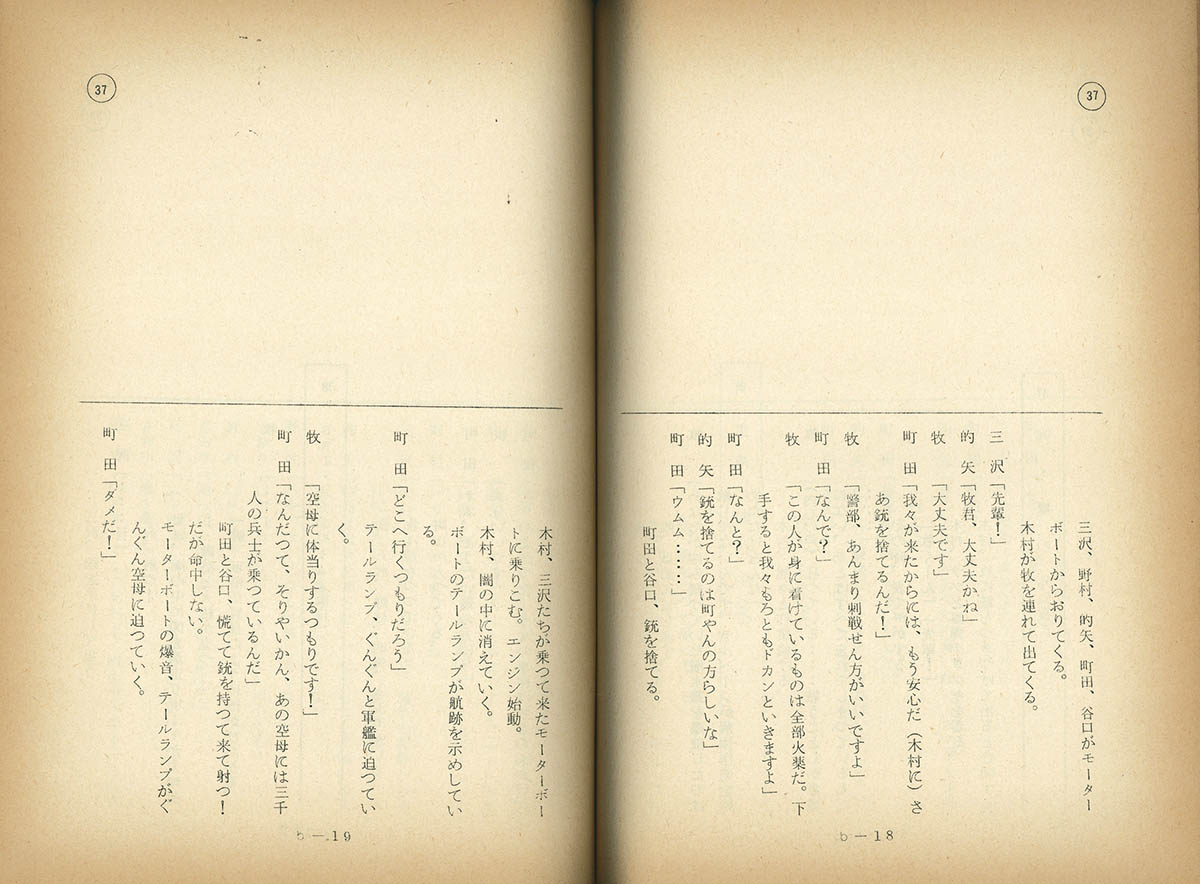 37
三沢、野村、的矢、町田、谷口がモーター
ボートからおりてくる。
木村が牧を連れて出てくる。
三　沢「先輩！」
的　矢「牧君、大丈夫かね」
牧　　「大丈夫です」
町　田「我々が来たからには、もう安心だ（木村に）さ
あ銃を捨てるんだ！」
牧　　「警部、あんまり刺戟せん方がいいですよ」
町　田「なんで？」
牧　　「この人が身に着けているものは全部火薬だ。下
手すると我々もろともドカンといきますよ」
町　田「なんと？」
的　矢「銃を捨てるのは町やんの方らしいな」
町　田「ウムム・・・・・」
町田と谷口、銃を捨てる。
b－18
37
木村、三沢たちが乗つて来たモーターボー
トに乗りこむ。エンジン始動。
木村、闇の中に消えていく。
ボートのテールランプが航跡を示めしてい
る。
町　田「どこへ行くつもりだろう」
テールランプ、ぐんぐんと軍艦に迫つてい
く。
牧　　「空母に体当りするつもりです！」
町　田「なんだつて、そりやいかん、あの空母には三千
人の兵士が乗つているんだ」
町田と谷口、慌てて銃を持つて来て射つ！
だが命中しない。
モーターボートの爆音、テールランプがぐ
んぐん空母に迫つていく。
町　田「ダメだ！」
b－19